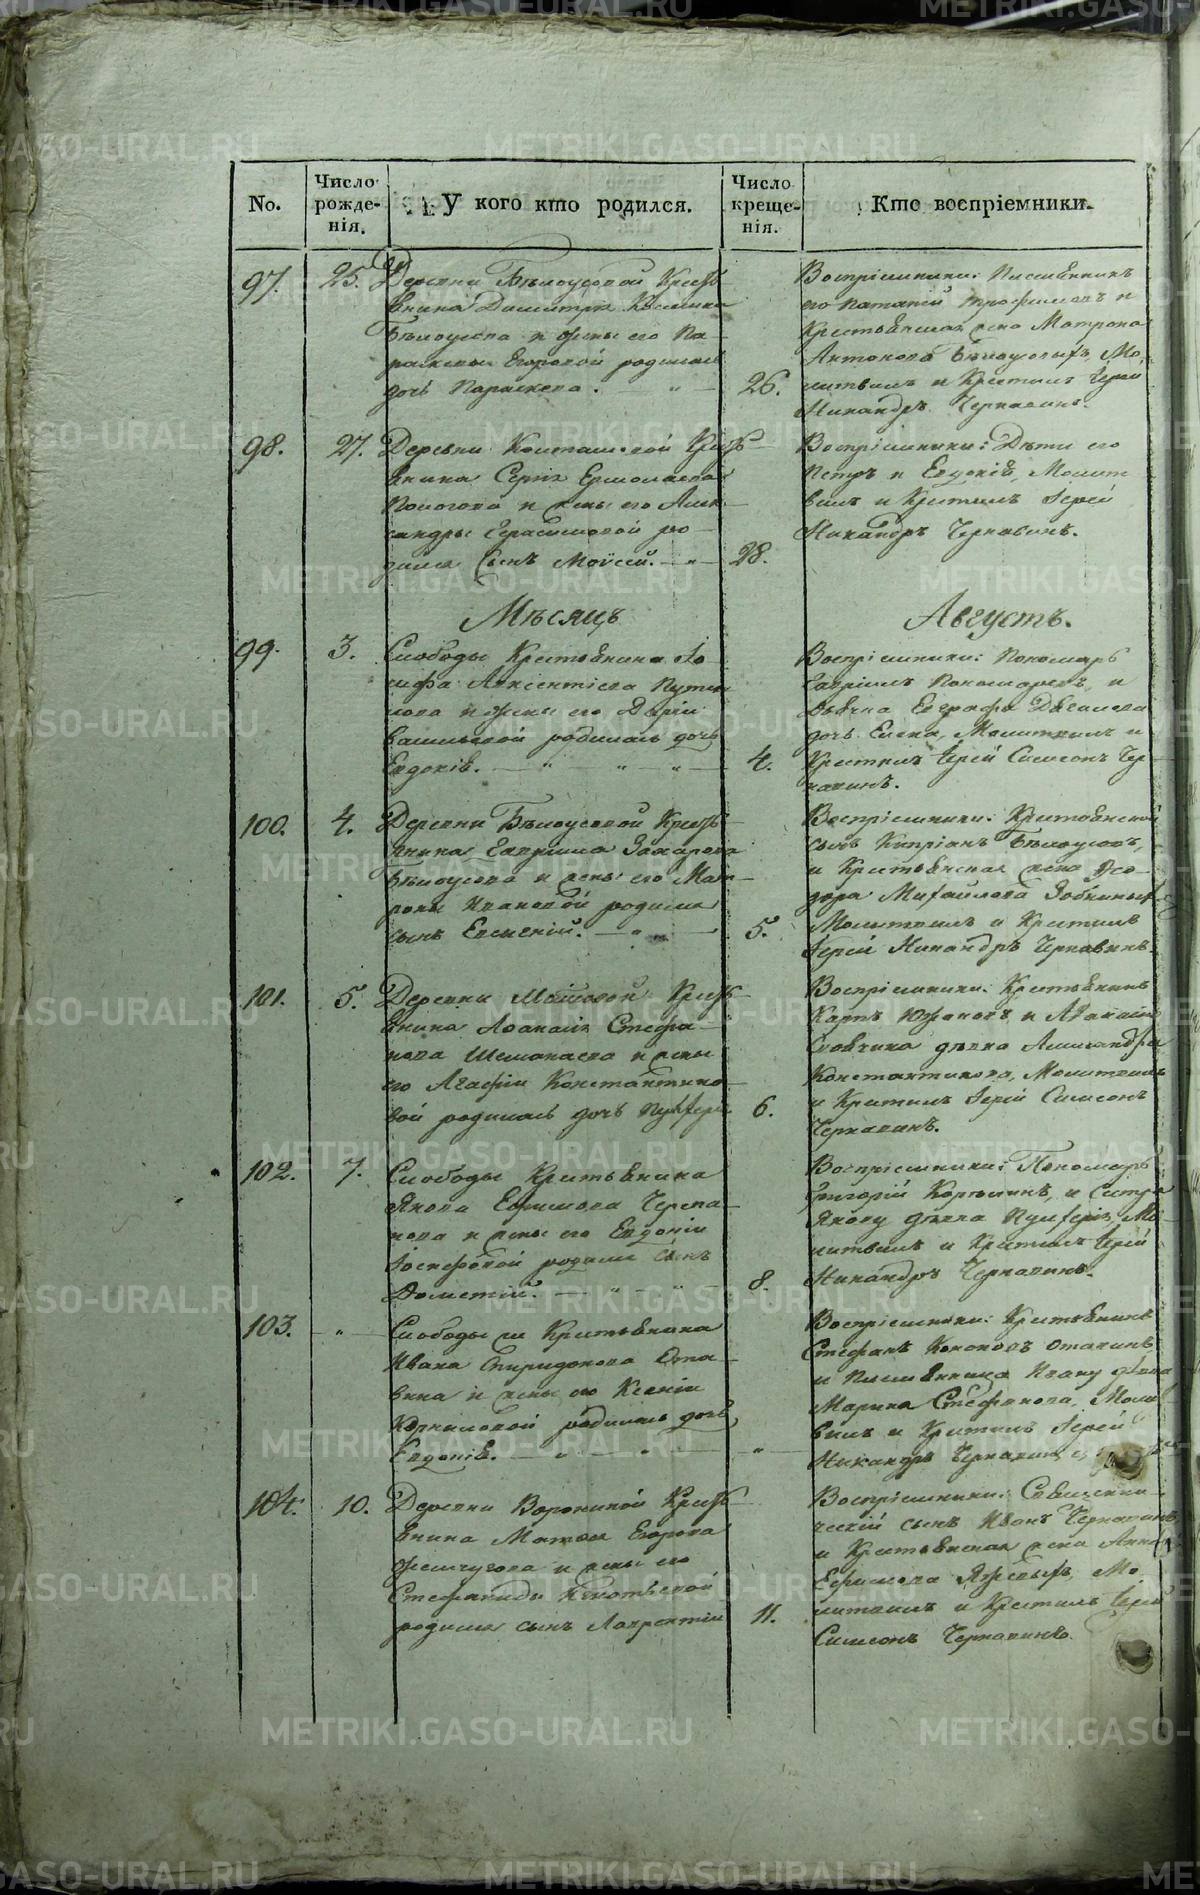 No.
Число рожденія.
У кого кто родился.
Число крещенія.
Кто воспріемники.
97.
25.
Деревни Бѣлоусовой Кресть
янина Димитрія
Бѣлоусова и жены его Па
расковьи Егоровой родилась
дочь Параскева.
26.
Воспріемники: Племянникъ
его Трофимовъ и
Крестьянская жена Матрона
Антонова Бѣлоусовыхъ, Мо
литвилъ и Крестилъ Іерей
Никандръ Чернавинъ.
98.
27.
Деревни Кресть
янина Сергія Ермолаева
и жены его Алек
сандры Герасимовой ро
дился сынъ Моѵсей.
28.
Воспріемники: Дѣти его
Петръ и Евдокія, Молит
вилъ и Крестилъ Іерей
Никандръ Чернавинъ.
Мѣсяцъ
Августъ.
99.
3.
Слободы Крестьянина Іо
сифа Авксентіева Пути
лова и жены его Даріи
Васильевой родилась дочь
Евдокія.
4.
Воспріемники: Пономарь
Гавріилъ Пономаревъ, и
Дьячка Евграфа
дочь Елена, Молитвилъ и
Крестилъ Іерей Симеонъ Чер
навинъ.
100.
4.
Деревни Бѣлоусовой Кресть
янина Гавриила Захарова
Бѣлоусова и жены его Мат
роны Ивановой родился
сынъ Евсигній.
5.
Воспріемники: Крестьянской
сынъ Кипріанъ Бѣлоусовъ,
и Крестьянская жена Ѳео
дора Михайлова Зобниныхъ
Молитвилъ и Крестилъ
Іерей Никандръ Чернавинъ.
101.
5.
Деревни Кресть
янина Аѳанасія Стефа
нова и жены
его Агафіи Константино
вой родилась дочь Пулхерія
6.
Воспріемники: Крестьянинъ
Карпъ и Аѳанасія
дѣвка Александра
Константинова, Молитвилъ
и Крестилъ Іерей Симеонъ
Чернавинъ.
102.
7.
Слободы Крестьянина
Якова Ефимова Черепа
нова и жены его Евдокіи
Іосифовой родился сынъ
Дометій.
8.
Воспріемники: Пономарь
Григорій и Сестра
Якову дѣвка Пулхерія, Мо
литвилъ и Крестилъ Іерей
Никандръ Чернавинъ.
103.
Слободы Крестьянина
Ивана Спиридонова Ота
вина и жены его Ксеніи
Корниловой родилась дочь
Евдокія.
Воспріемники: Крестьянинъ
Стефанъ Кононовъ Отавинъ
и Племянница Ивану дѣвка
Марина Стефанова, Молит
вилъ и Крестилъ Іерей
Никандръ Чернавинъ
104.
10.
Деревни Ворониной Кресть
янина Матвея Егорова
Жемчугова и жены его
Стефаниды Игнатьевой
родился сынъ Лаврентій
11.
Воспріемники: Священни
ческій сынъ Иванъ Чернавинъ
и Крестьянская жена Анна
Ефимова Мо
литвилъ и Крестилъ Іерей
Симеонъ Чернавинъ.
METRIKI.GASO-URAL.RU